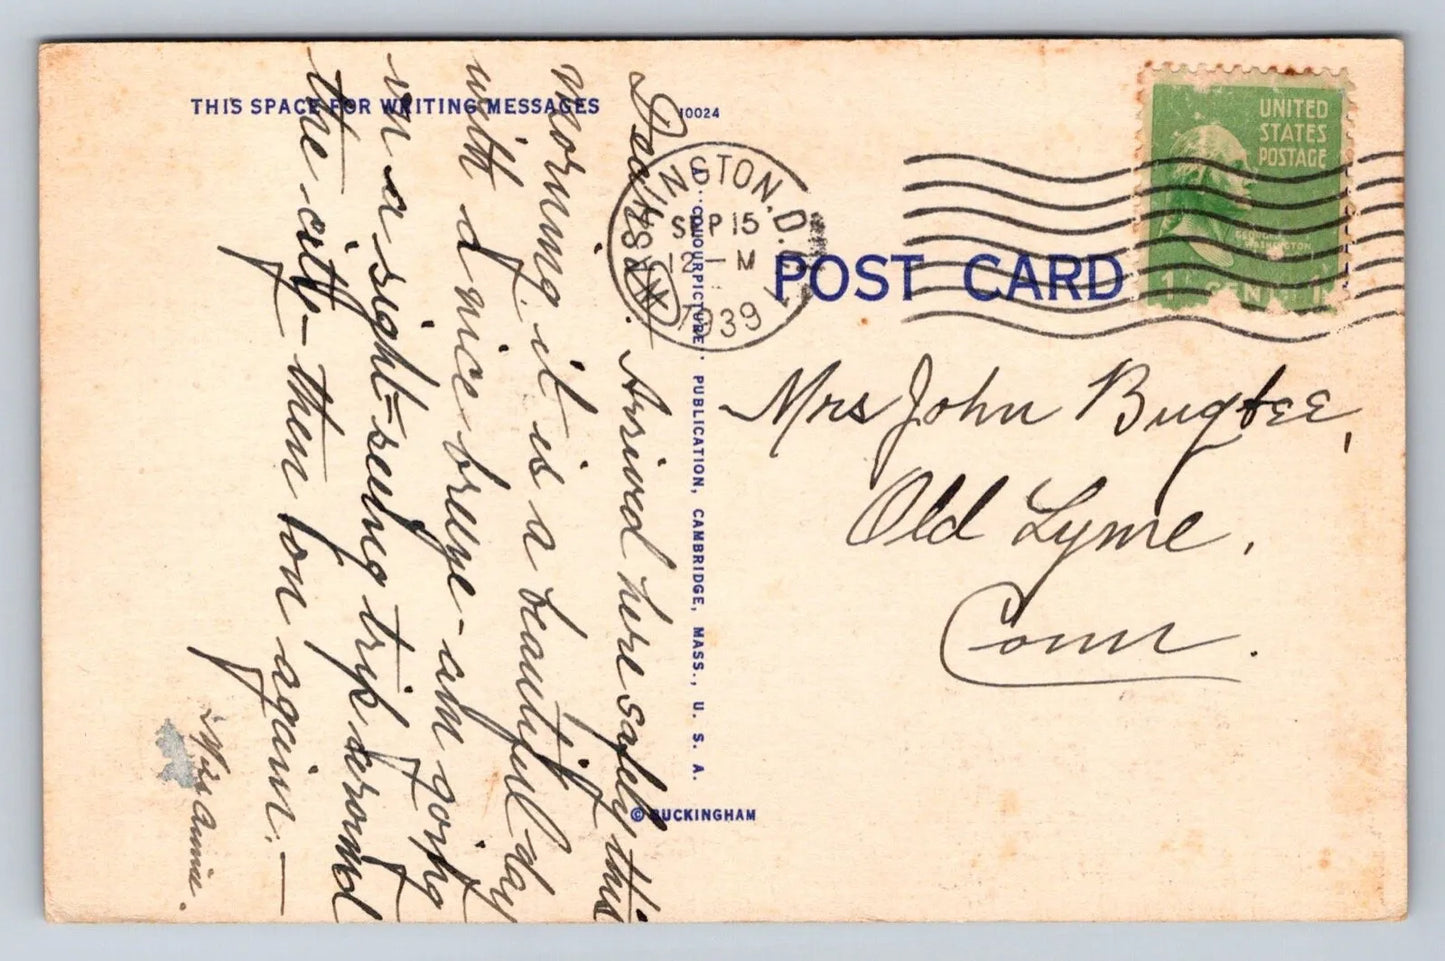 THIS SPACE FOR WRITING MESSAGES
10024
WASHINGTON, D.C.
SEP 15
12 – M
1939
UNITED
STATES
POSTAGE
GEORGE
WASHINGTON
1 CENT 1
POST CARD
A "COLOURPICTURE" PUBLICATION, CAMBRIDGE, MASS., U. S. A.
© BUCKINGHAM
Mrs John Bugbee,
Old Lyme,
Conn.
Arrived here safely this
morning, it is a beautiful day
with a nice breeze – am going
on a sight-seeing trip around
the city – then on again. –
Miss Annie.